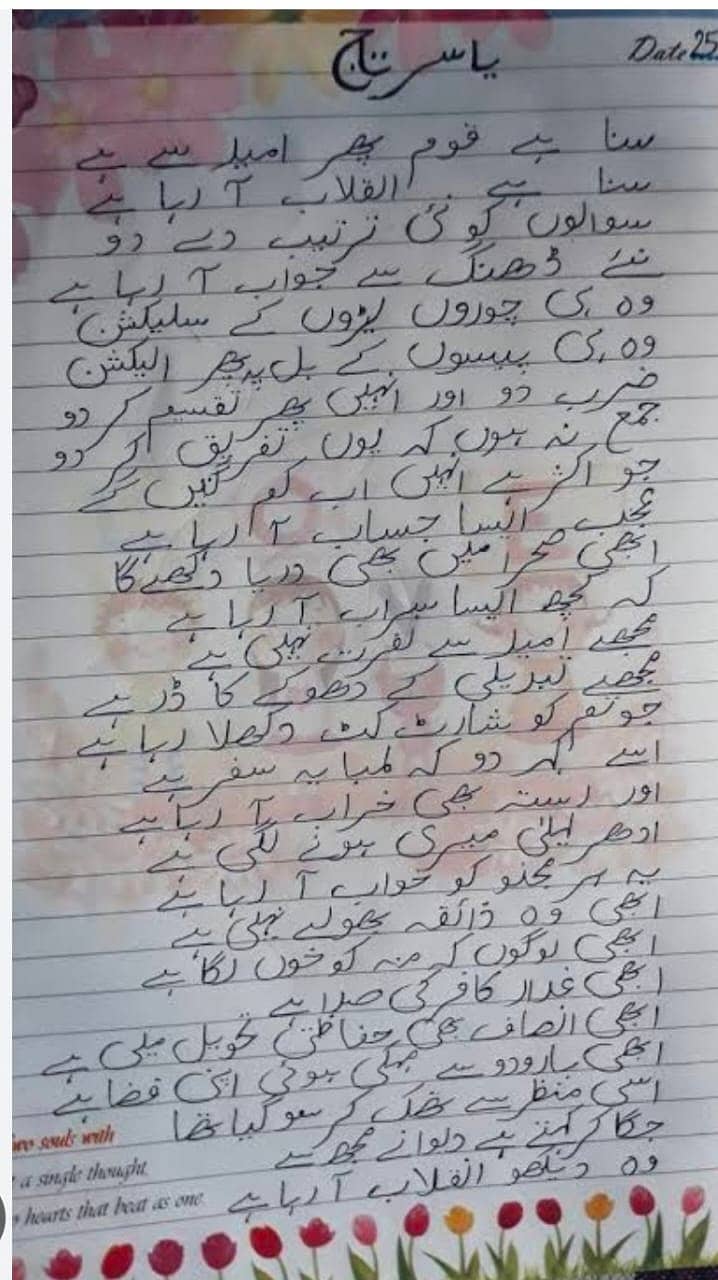 Date 25
یاسر تاج
سنا ہے قوم پھر امید سے ہے
سنا ہے انقلاب آ رہا ہے
سوالوں کو نئی ترتیب دے دو
نئے ڈھنگ سے جواب آ رہا ہے
وہ ہی چوروں لیڑوں کے سلیکشن
وہ ہی پیسوں کے بل پہ پھر الیکشن
ضرب دو اور انہیں پھر تقسیم کر دو
جمع نہ ہوں کہ یوں تفریق کر دو
جو اکثر ہے انہیں اب کم گنیں گے
عجب ایسا حساب آ رہا ہے
ابھی صحرا میں بھی دریا دکھے گا
کہ کچھ ایسا سراب آ رہا ہے
مجھے امید سے نفرت نہیں ہے
مجھے تبدیلی کے دھوکے کا ڈر ہے
جو تم کو شارٹ کٹ دکھلا رہا ہے
اسے کہہ دو کہ لمبا یہ سفر ہے
اور رستہ بھی خراب آ رہا ہے
ادھر لیلیٰ میری ہونے لگی ہے
یہ ہر مجنو کو خواب آ رہا ہے
ابھی وہ ذائقہ بھولے نہیں ہے
ابھی لوگوں کہ منہ کو خوں لگا ہے
ابھی غدار کافر کی صدا ہے
ابھی انصاف بھی حفاظتی تحویل میں ہے
ابھی بارودو سے مہکی ہوئی اپنی فضا ہے
اسی منظر سے تھک کر سو گیا تھا
جگا کر کہتے ہے دیوانے مجھ سے
وہ دیکھو انقلاب آ رہا ہے
two souls with
a single thought
hearts that beat as one